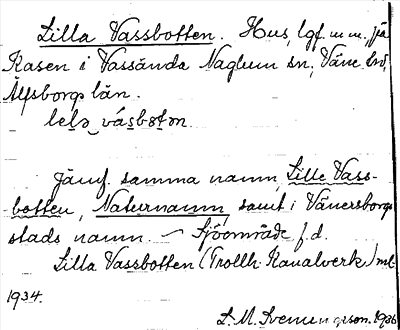 Lilla Vassbotten. Hus, lgf. m. m., på
Kasen i Vassända Naglum sn, Väne hd,
Älfsborgs län.
lelə vásbotən
Jämf. samma namn, Lille Vass-
botten, Naturnamn, samt i Vänersborgs
stads namn. – Sjöområde f.d.
Lilla Vassbotten (Trollh. Kanalverk)
1934.
L. M. Svenungsson. 1936